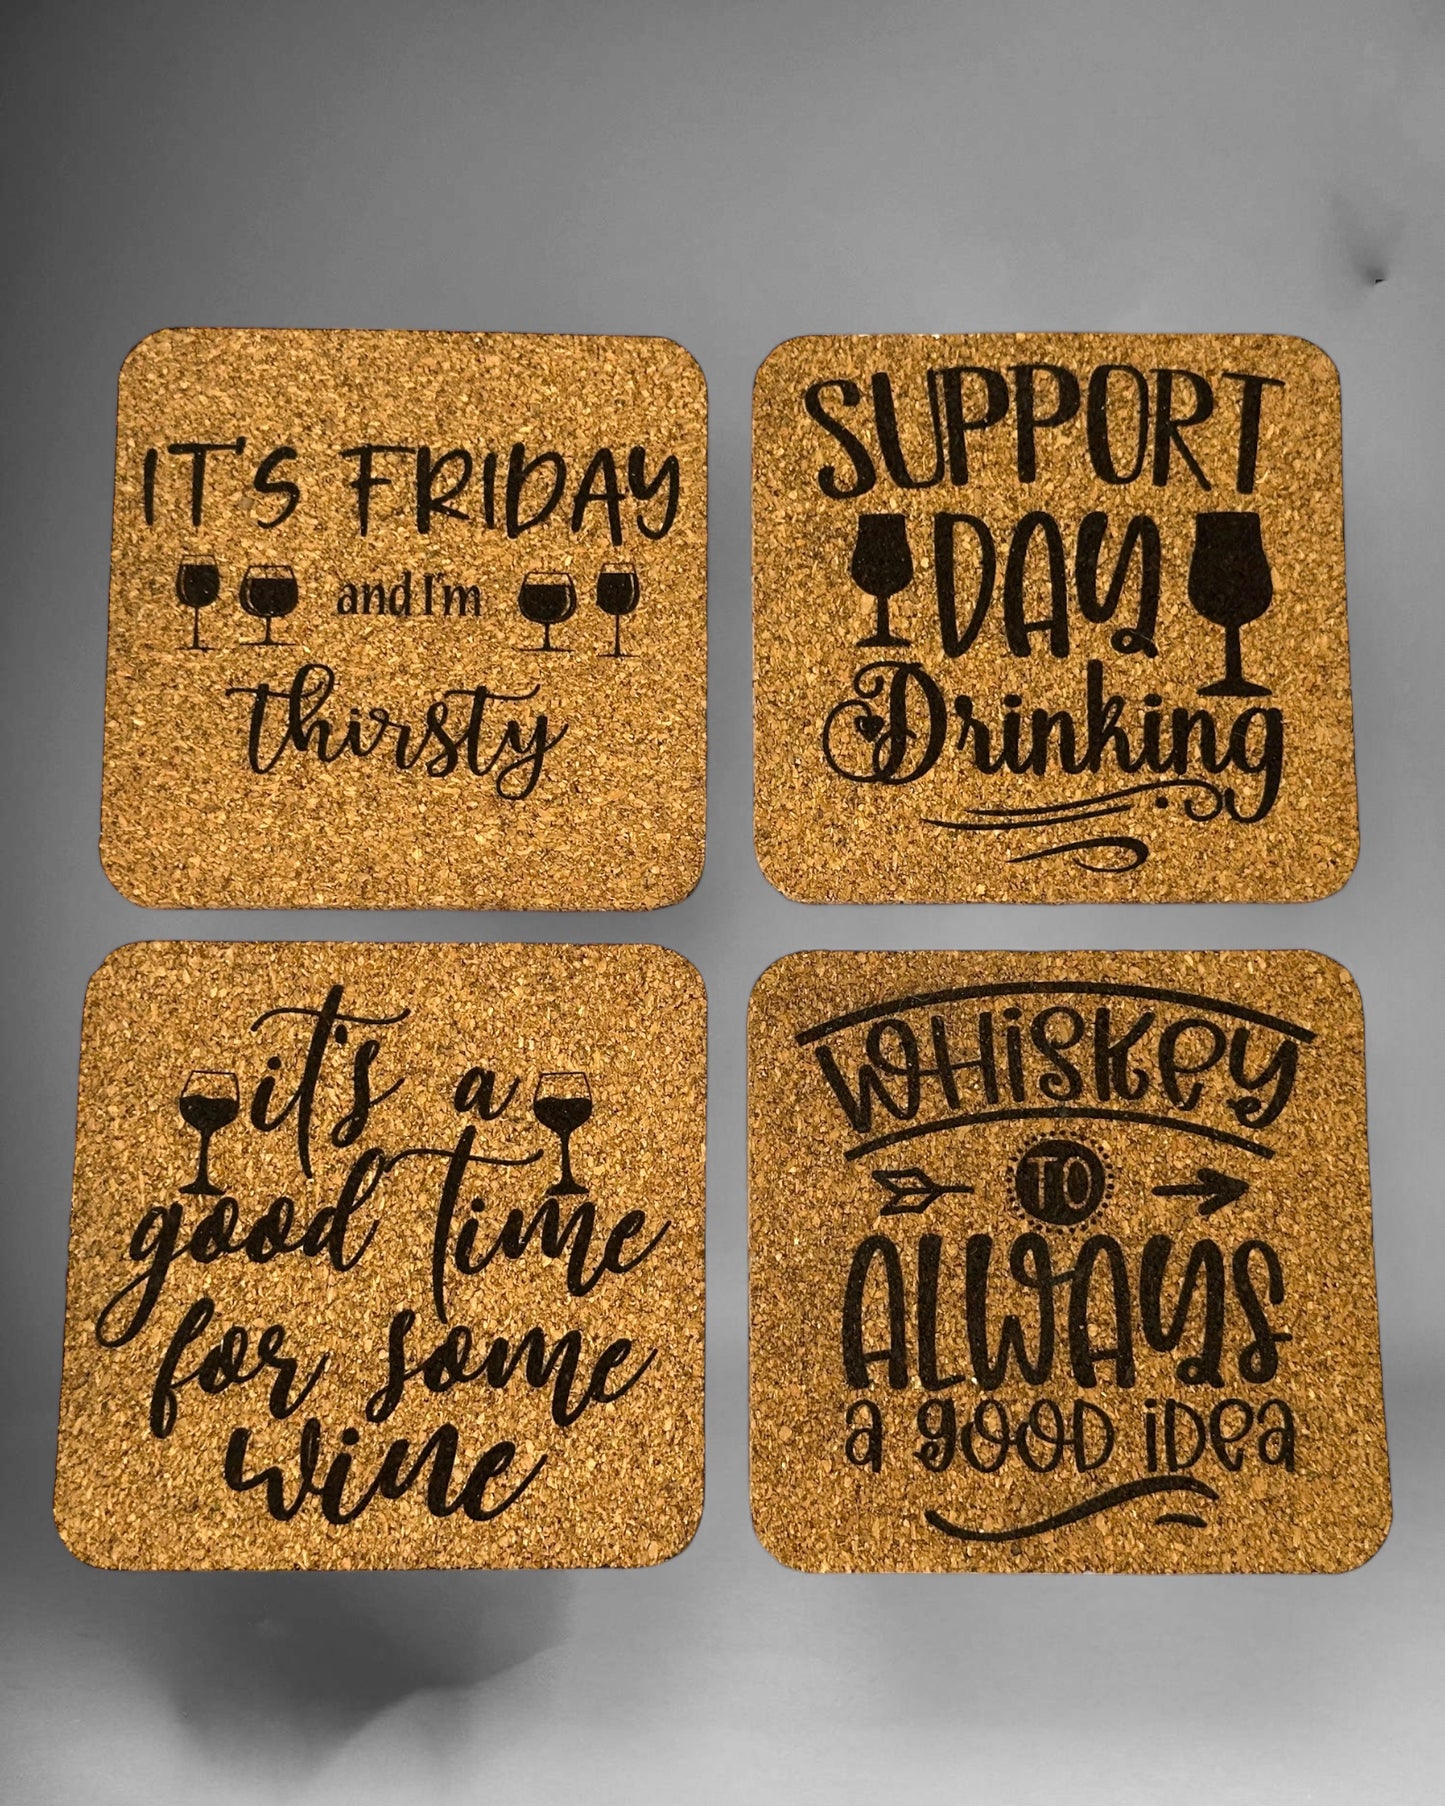 IT'S FRIDAY
and I'm
thirsty
SUPPORT
DAY
Drinking
it's a
good time
for some
wine
WHISKEY
TO
ALWAYS
a good idea